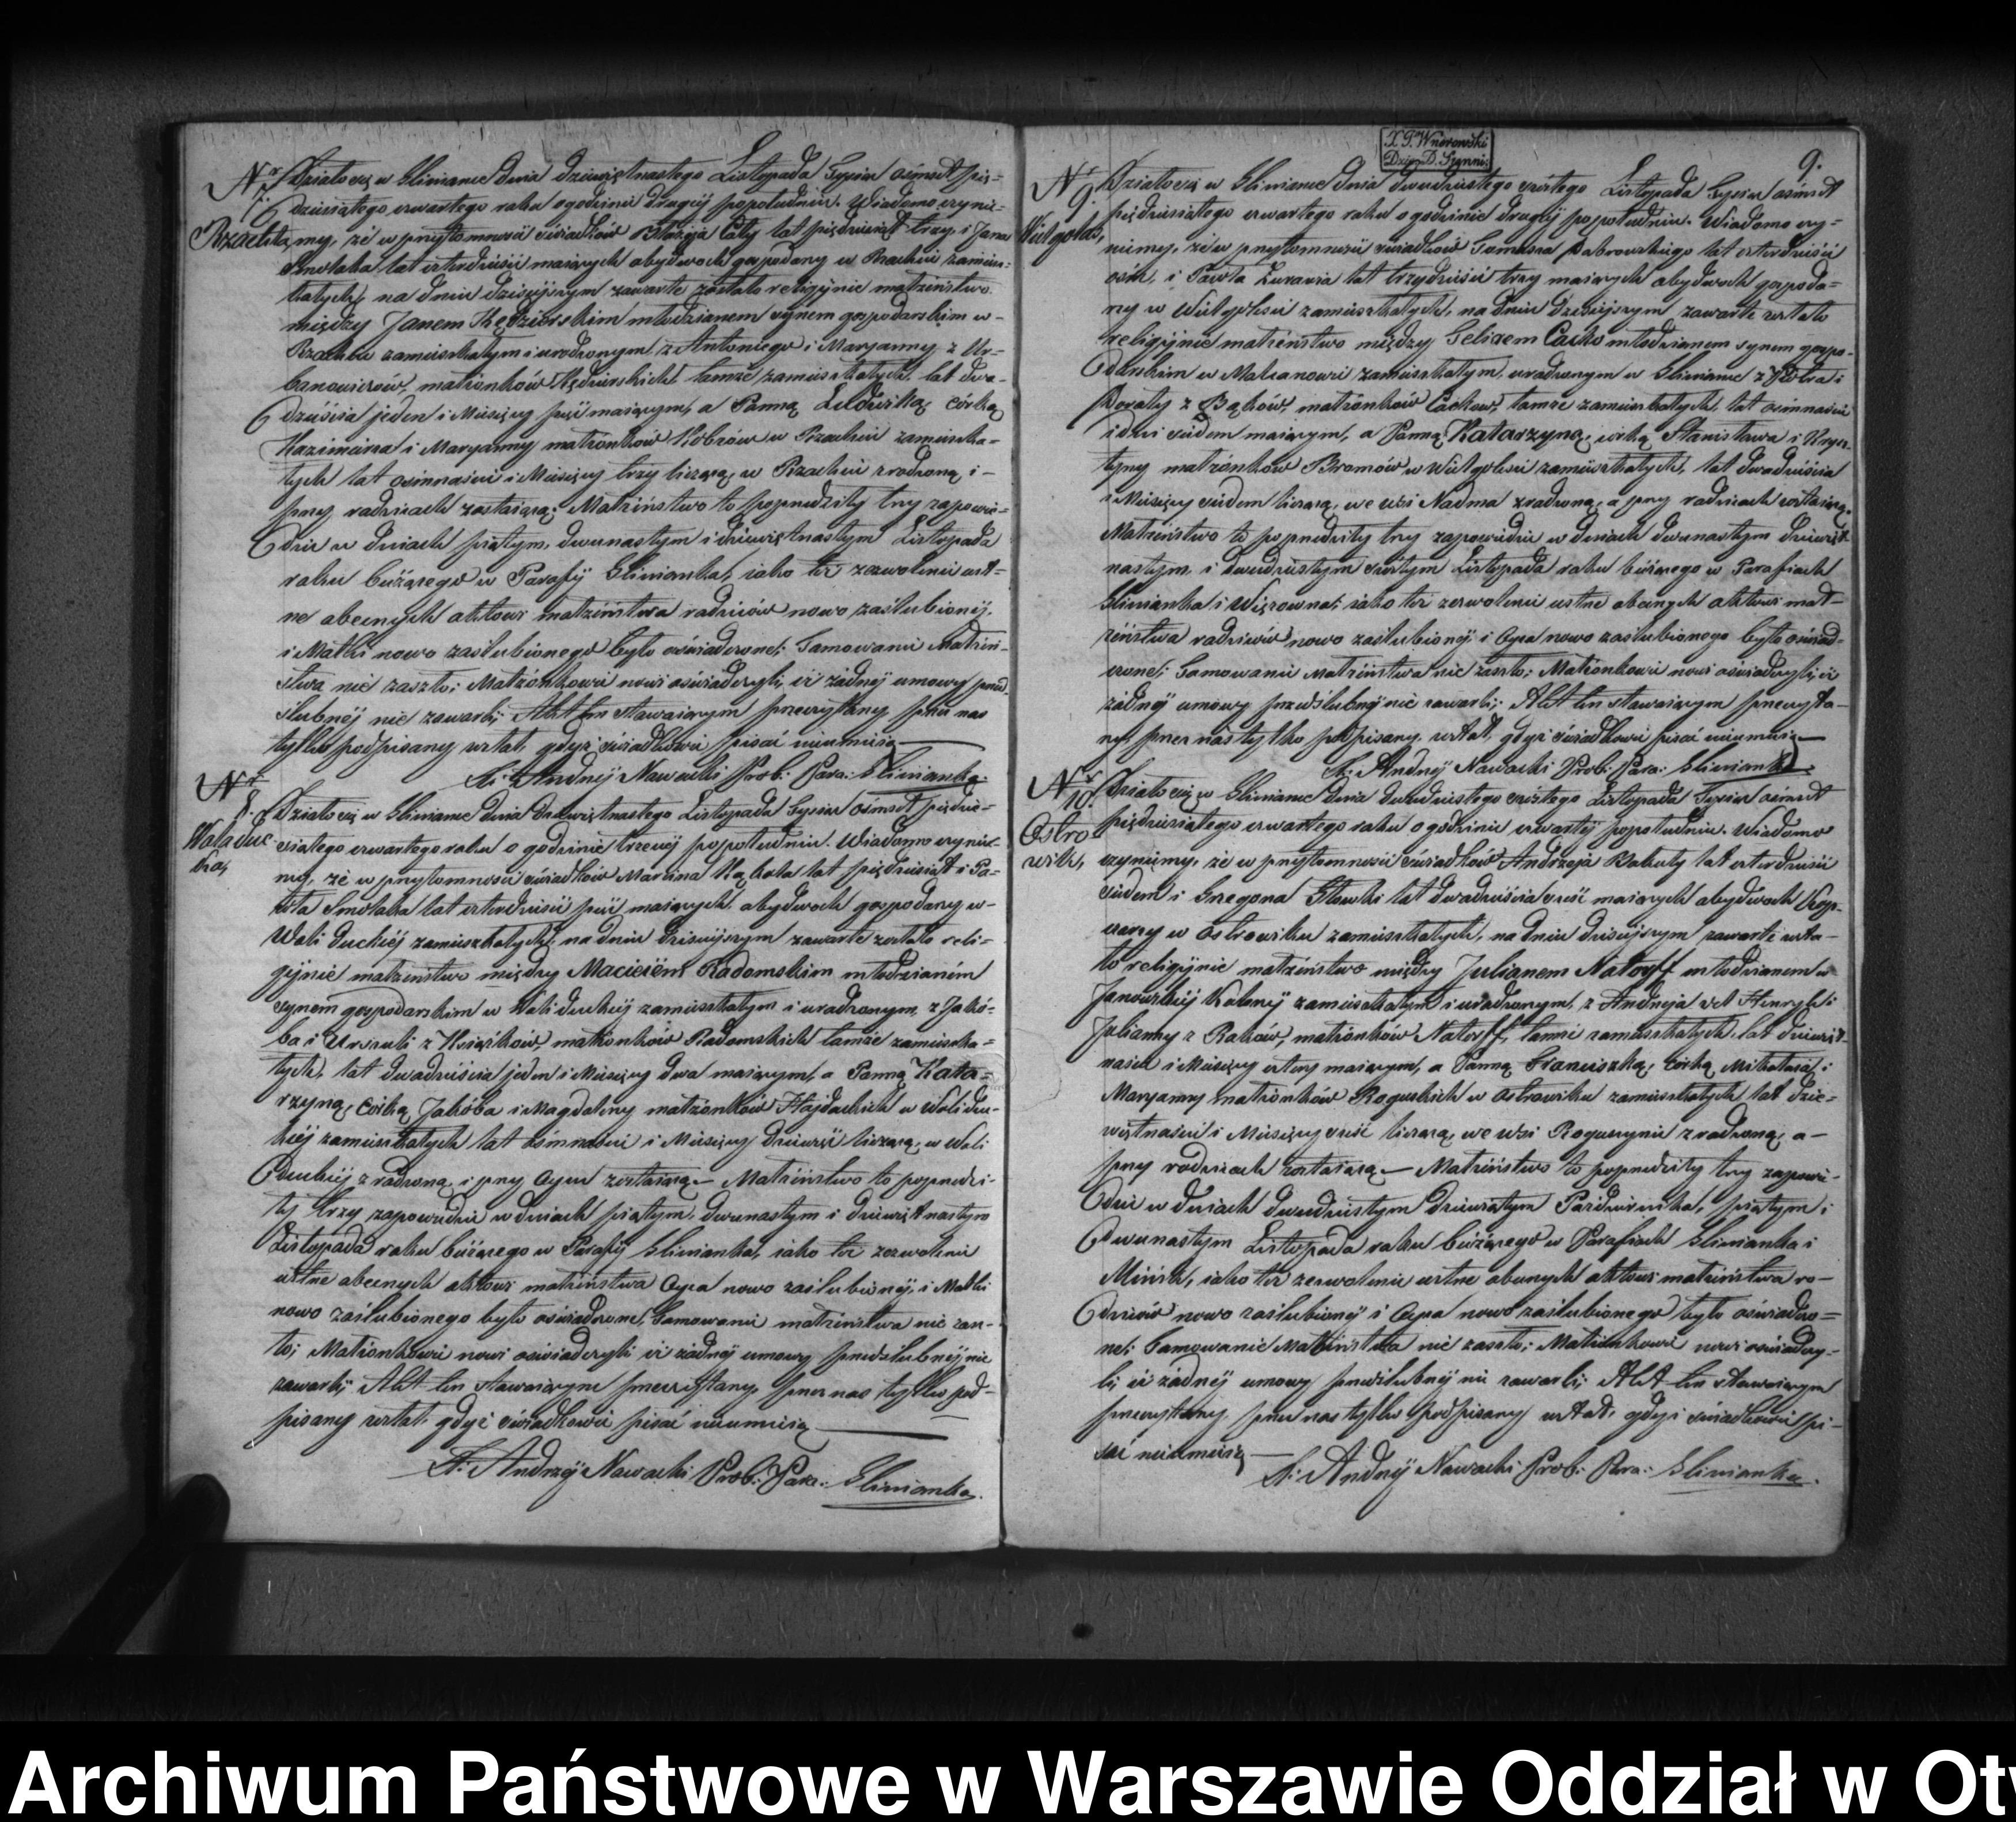 Nr 7.
Rzachta,
Działo się w Gliniance dnia dziewiętnastego Listopada tysiąc ośmset pię-
dziesiątego czwartego roku o godzinie drugiej popołudniu. Wiadomo czyni-
my, że w przytomności świadków Błażeja Cały lat pięćdziesiąt trzy i Jana
Smolaka lat czterdzieści maiących obydwóch gospodarzy w Rzachcie zamiesz-
kałych, na dniu dzisiejszym zawarte zostało religijnie małżeństwo
między Janem Kędzierskim młodzianem synem gospodarskim w-
Rzachcie zamieszkałym i urodzonym z Antoniego i Maryanny z Ur-
banowiczów, małżonków Kędzierskich tamże zamieszkałych lat dwa-
dzieścia jeden i Miesięcy pięć maiącym, a Panną Ludwiką córką
Kazimierza i Maryanny małżonków Kobzów w Rzachcie zamieszka-
łych lat ośmnaście i Miesięcy trzy liczącą w Rzachcie zrodzoną i-
przy rodzicach zostaiącą; Małżeństwo to poprzedziły trzy zapowie-
dzie w dniach piątym, dwunastym i dziewiętnastym Listopada
roku bieżącego w Parafij Glinianka, iako też zezwolenie ust-
ne obecnych aktowi małżeństwa rodziców nowo zaślubionéj.
i Matki nowo zaślubionego było oświadczone; Tamowanie Małżeń-
stwa nie zaszło; Małżonkowie nowi oświadczyli, iż żadnéj umowy przed-
ślubnéj nie zawarli; Akt ten stawaiącym przeczytany przez nas
tylko podpisany został, gdyż świadkowie pisać nieumieią
X: Andrzéj Nawacki Prob: Para: Glinianka.
Nr 8.
Wola duc-
ka,
Działo się w Gliniance dnia Dziewiętnastego Listopada tysiąc ośmset pięćdzie-
siątego czwartego roku o godzinie trzeciéj popołudniu. Wiadomo czyni-
my, że w przytomności świadków Marcina Kąkola lat pięćdziesiąt i Pa-
wła Smolaka lat czterdzieści pięć maiących obydwóch gospodarzy w-
Woli duckiéj zamieszkałych, na dniu dzisiejszym zawarte zostało reli-
gijnie małżeństwo między Maciéiem Radomskim młodzianem
synem gospodarskim w Woli duckiéj zamieszkałym i urodzonym z Jakó-
ba i Urszuli z Księżków małżonków Radomskich tamże zamieszka-
łych, lat dwadzieścia jeden i Miesięcy dwa maiącym, a Panną Kata-
rzyną, córką Jakóba i Magdaleny małżonków Hajdackich w Woli duc-
kiéj zamieszkałych lat ośmnaście i Miesięcy dziewięć liczącą, w Woli
duckiéj zrodzoną i przy Oycu zostaiącą — Małżeństwo to poprzedzi-
ły trzy zapowiedzie w dniach piątym, dwunastym i dziewiętnastym
Listopada roku bieżącego w Parafij Glinianka, iako też zezwolenie
ustne obecnych aktowi małżeństwa Oyca nowo zaślubionéj, i Matki
nowo zaślubionego było oświadczone, Tamowanie małżeństwa nie zasz-
ło; Małżonkowie nowi oświadczyli iż żadnéj umowy przedślubnéj nie
zawarli; Akt ten stawaiącym przeczytany, przez nas tylko pod-
pisany został, gdyż świadkowie pisać nieumieią
X: Andrzéj Nawacki Prob: Para: Glinianka.
X. G. Wnorowski
Dzież. D. Szenni:
9.
Nr 9.
Wiélgolas,
Działo się w Gliniance dnia dwudziestego szóstego Listopada tysiąc ośmset
pięćdziesiątego czwartego roku o godzinie drugiéj popołudniu. Wiadomo czy-
niemy, że w przytomności świadków Tomasza Dabrowskiego lat czterdzieści
ośm, i Pawła Żurawia lat trzydzieści trzy maiących obydwóch gospoda-
rzy w Wiélgolesie zamieszkałych, na dniu dzisiejszym zawarte zostało
religijnie małżeństwo między Felixem Caćko młodzianem synem gospo-
darskim w Malcanowie zamieszkałym, urodzonym w Gliniance z Piotra i
Doroty z Bąków, małżonków Caćków, tamże zamieszkałych, lat ośmnaście
i dni siedem maiącym, a Panną Katarzyną, córką Stanisława i Krys-
tyny małżonków Bromów w Wiélgolesie zamieszkałych, lat dwadzieścia
i Miesięcy siedem liczącą, we wsi Nadma zrodzoną, a przy rodzicach zostaiącą.
Małżeństwo to poprzedziły trzy zapowiedzie w dniach dwunastym dziewięt-
nastym i dwudziestym szóstym Listopada roku bieżącego w Parafiach
Glinianka i Wiązowna; iako też zezwolenie ustne obecnych aktowi mał-
żeństwa rodziców nowo zaślubionéj i Oyca nowo zaślubionego było oświad-
czone; Tamowanie Małżeństwa nie zaszło; Małżonkowie nowi oświadczyli, iż
żadnéj umowy przedślubnéj nie zawarli; Akt ten stawaiącym przeczyta-
ny, przez nas tylko podpisany został, gdyż świadkowie pisać nieumieią —
X: Andrzéj Nawacki Prob: Para: Glinianka.
Nr 10.
Ostro
wik,
Działo się w Gliniance dnia dwudziestego szóstego Listopada tysiąc ośmset
pięćdziesiątego czwartego roku o godzinie czwartéj popołudniu. Wiadomo
czynimy, że w przytomności świadków Andrzeja Rakuły lat czterdzieści
siedem i Grzegorza Sławki lat dwadzieścia sześć maiących obydwóch
w Ostrowiku zamieszkałych, na dniu dzisiejszym zawarte zosta-
ło religijnie małżeństwo między Julianem Natorff młodzianem w
Janowskiéj Kolonij zamieszkałym i urodzonym, z Andrzeja Henryka i
Julianny z Raków, małżonków Natorff, tamże zamieszkałych, lat dziewięt-
naście i Miesięcy cztery maiącym, a Panną Franciszką, Córką Mikołaia i
Maryanny małżonków Roguskich w Ostrowiku zamieszkałych lat dzie-
więtnaście i Miesięcy sześć liczącą, we wsi Roguszynie zrodzoną, a-
przy rodzicach zostaiącą — Małżeństwo to poprzedziły trzy zapowie-
dzie w dniach dwudziestym dziewiątym Października, piątym i
dwunastym Listopada roku bieżącego w Parafiach Glinianka i
Mińsk, iako też zezwolenie ustne obecnych aktowi małżeństwa ro-
dziców nowo zaślubionéj i Oyca nowo zaślubionego było oświadczo-
ne; Tamowanie Małżeństwa nie zaszło; Małżonkowie nowi oświadczy-
li, iż żadnéj umowy przedślubnéj nie zawarli; Akt ten stawaiącym
przeczytany, przez nas tylko podpisany został, gdyż świadkowie pi-
sać nieumieią —
X: Andrzéj Nawacki Prob: Para: Glinianka.
Archiwum Państwowe w Warszawie Oddział w Otw